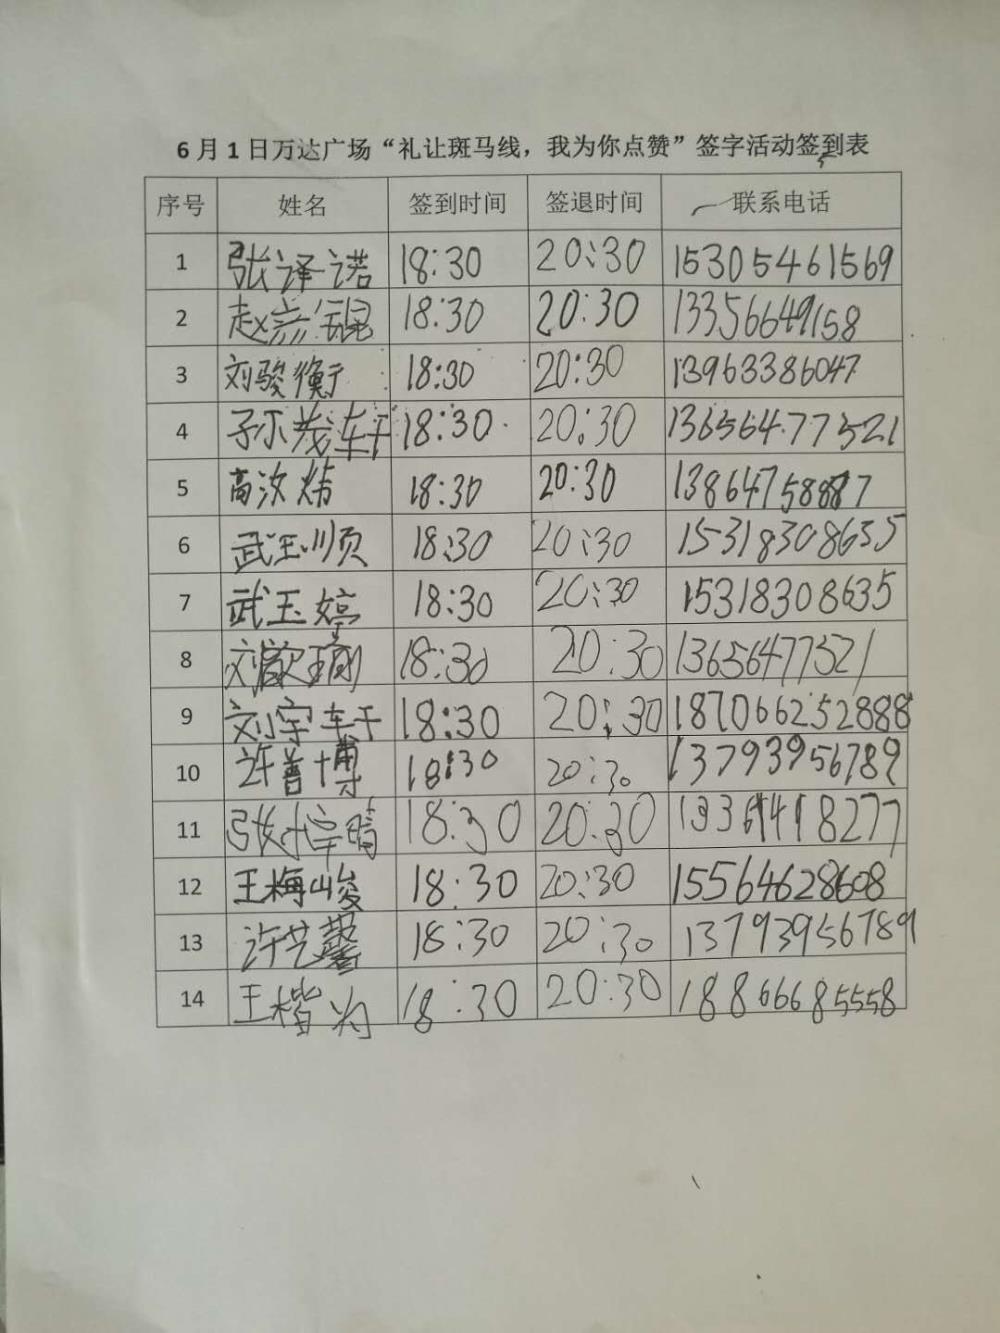 6月1日万达广场“礼让斑马线，我为你点赞”签字活动签到表
序号 姓名 签到时间 签退时间 联系电话
1 张译诺 18:30 20:30 15305461569
2 赵崇锟 18:30 20:30 13356649158
3 刘骏衡 18:30 20:30 13963386047
4 孙茂轩 18:30 20:30 13656477521
5 高汝炜 18:30 20:30
6 武玉顺 18:30 20:30 15318308635
7 武玉婷 18:30 20:30 15318308635
8 18:30 20:30 13656477521
9 刘宇轩 18:30 20:30 187066252888
10 许普博 18:30 20:30 13793956789
11 18:30 20:30
12 王梅峻 18:30 20:30 15564628608
13 许艺馨 18:30 20:30 13793956789
14 王楷为 18:30 20:30 18866685558